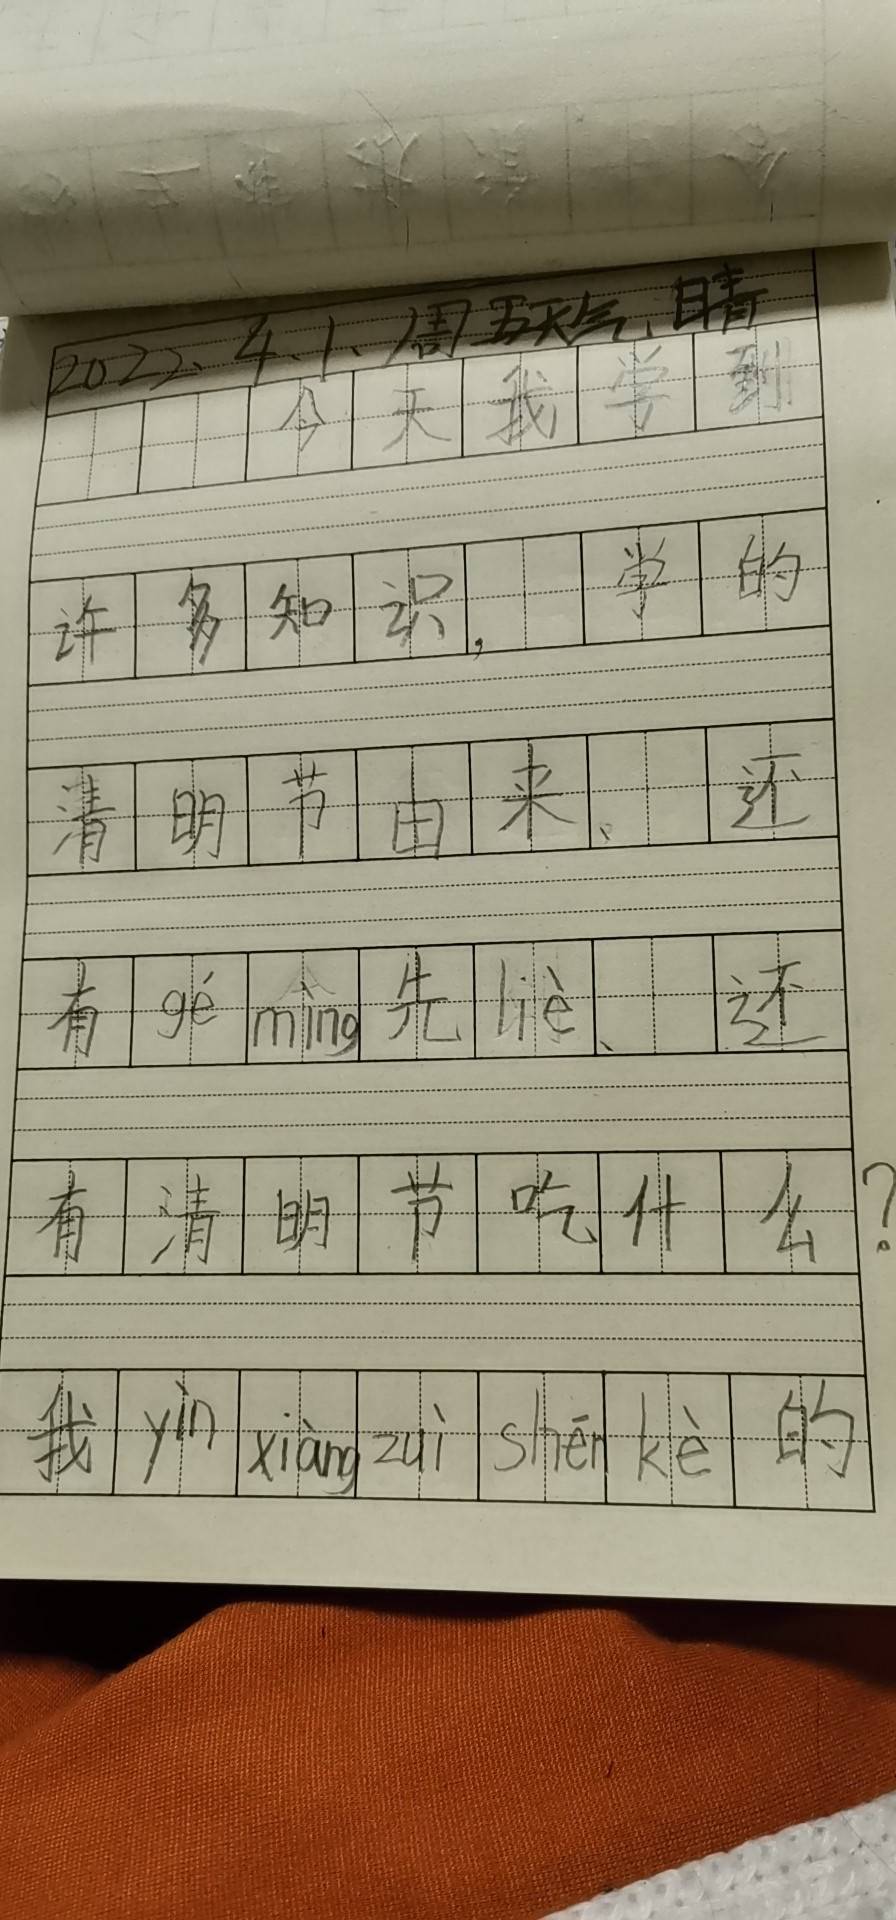 2022、4、1、周五天气、晴
今天我学到
许多知识，学的
清明节由来、还
有gé mìng先liè、还
有清明节吃什么？
我yìn xiàng zuì shēn kè的